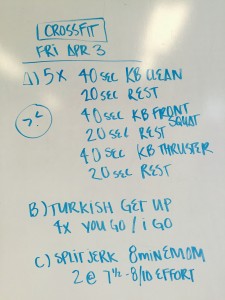 CROSSFIT
FRI APR 3
A) 5X 40 SEC KB CLEAN
20 SEC REST
40 SEC KB FRONT
SQUAT
20 SEC REST
40 SEC KB THRUSTER
20 SEC REST
B) TURKISH GET UP
4X YOU GO / I GO
C) SPLIT JERK 8 MIN EMOM
2 @ 7½ - 8/10 EFFORT